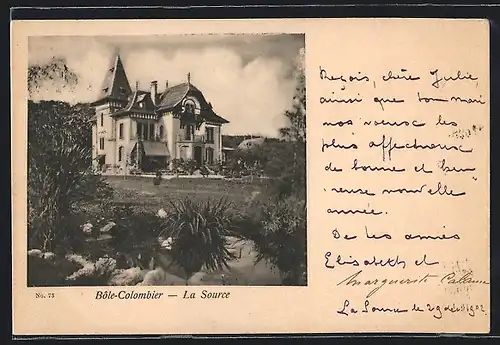 Reçois, chère Julie,
ainsi que ton mari
nos voeux les
plus affectueux
de bonne et heu-
reuse nouvelle
année.
De tes amies
Elisabeth et
Marguerite
La Source le 29 déc 1902
No. 75
Bôle-Colombier — La Source